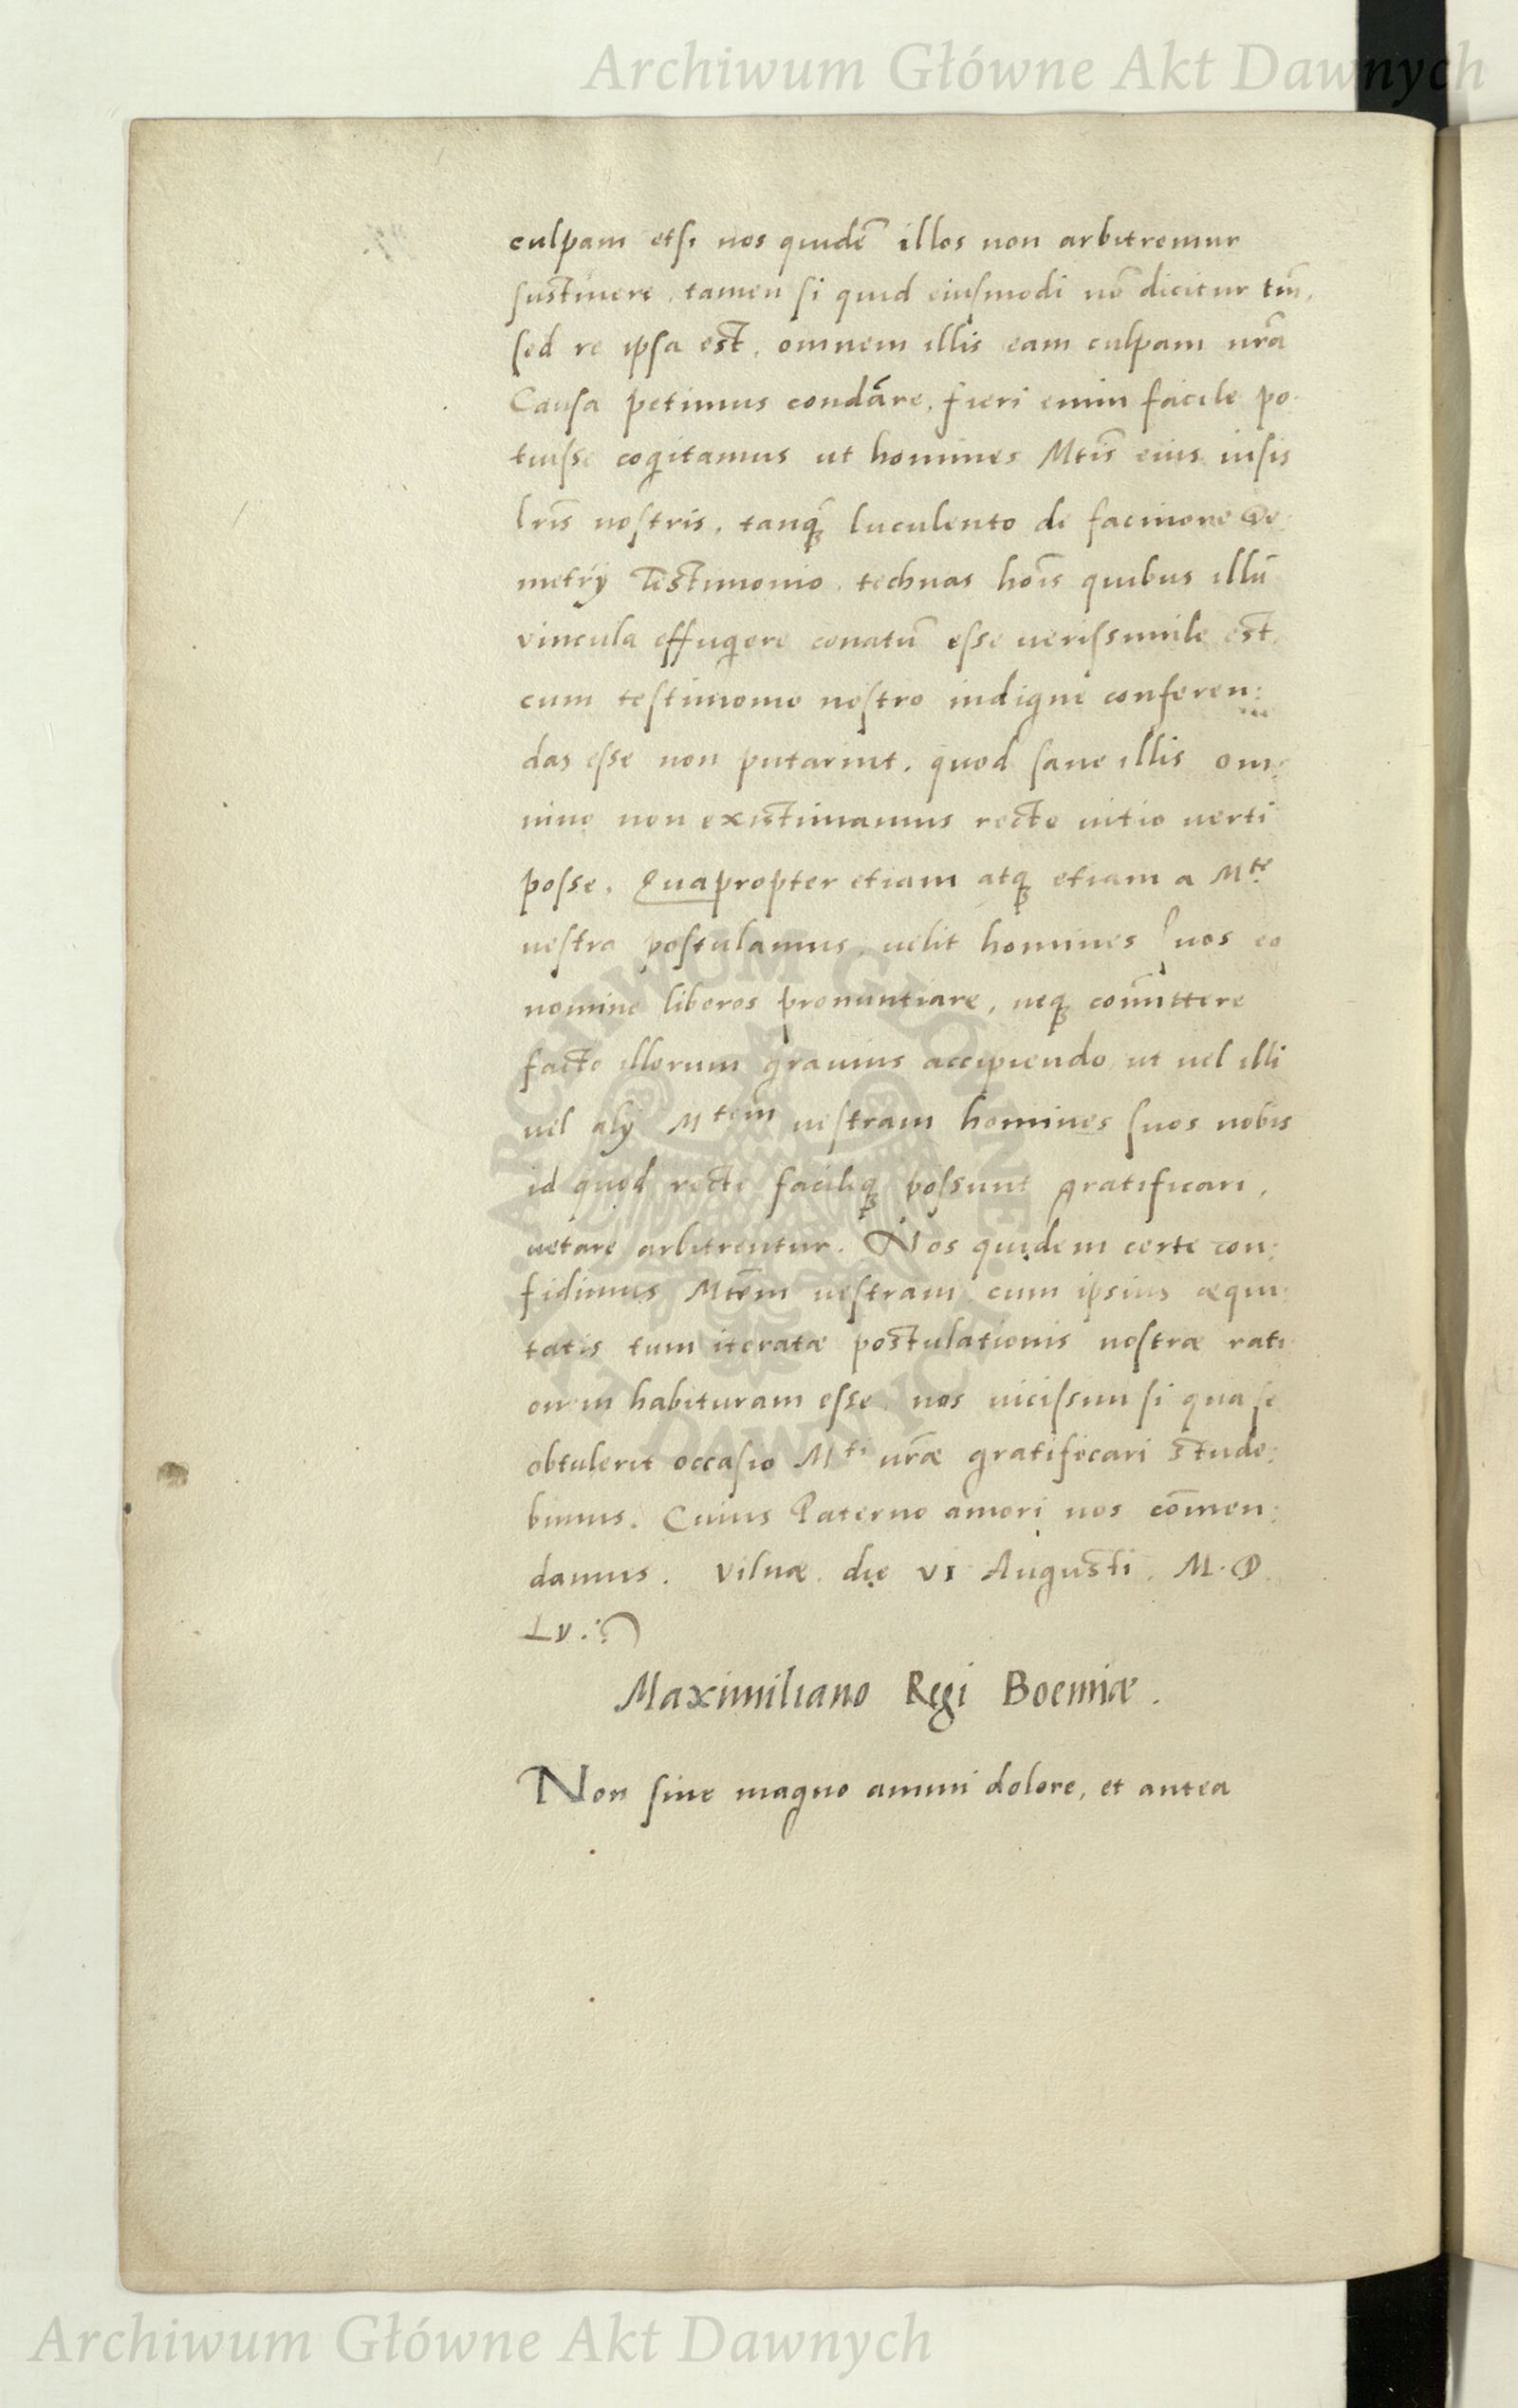 Archiwum Główne Akt Dawnych
culpam etsi nos quidē illos non arbitremur
sustinere, tamen si quid eiusmodi nō dicitur tm̄,
sed re ipsa est, omnem illis eam culpam nrā
Causa petimus condāre, fieri enim facile po:
tuisse cogitamus ut homines Mtis̄ eius uisis
lr̄is nostris, tanq̄ luculento de facinore De:
metrÿ Testimonio, technas hoīs quibus illū
vincula effugere conatū esse uerissimile est,
cum testimonio nostro indigne conferen:
das esse non putarint, quod sane illis om:
nino non existimamus recte uitio uerti
posse. Quapropter etiam atq; etiam a Mte
uestra postulamus, uelit homines suos eo
nomine liberos pronuntiare, neq; com̄ittere
facto illorum grauius accipiendo, ut uel illi
uel alÿ Mtem uestram homines suos nobis
id quod recte faciliq; possunt gratificari,
uetare arbitrentur. Nos quidem certe con:
fidimus Mtem̄ uestram, cum ipsius æqui:
tatis tum iteratæ postulationis nostræ rati
onem habituram esse, nos uicissim si qua se
obtulerit occasio Mti ur̄æ gratificari stude:
bimus. Cuius Paterno amori nos com̄en:
damus. Vilnæ die VI Augusti. M.D.
LV.:
Maximiliano Regi Boemiæ.
Non sine magno animi dolore, et antea
ARCHIWUM GŁÓWNE AKT DAWNYCH
Archiwum Główne Akt Dawnych